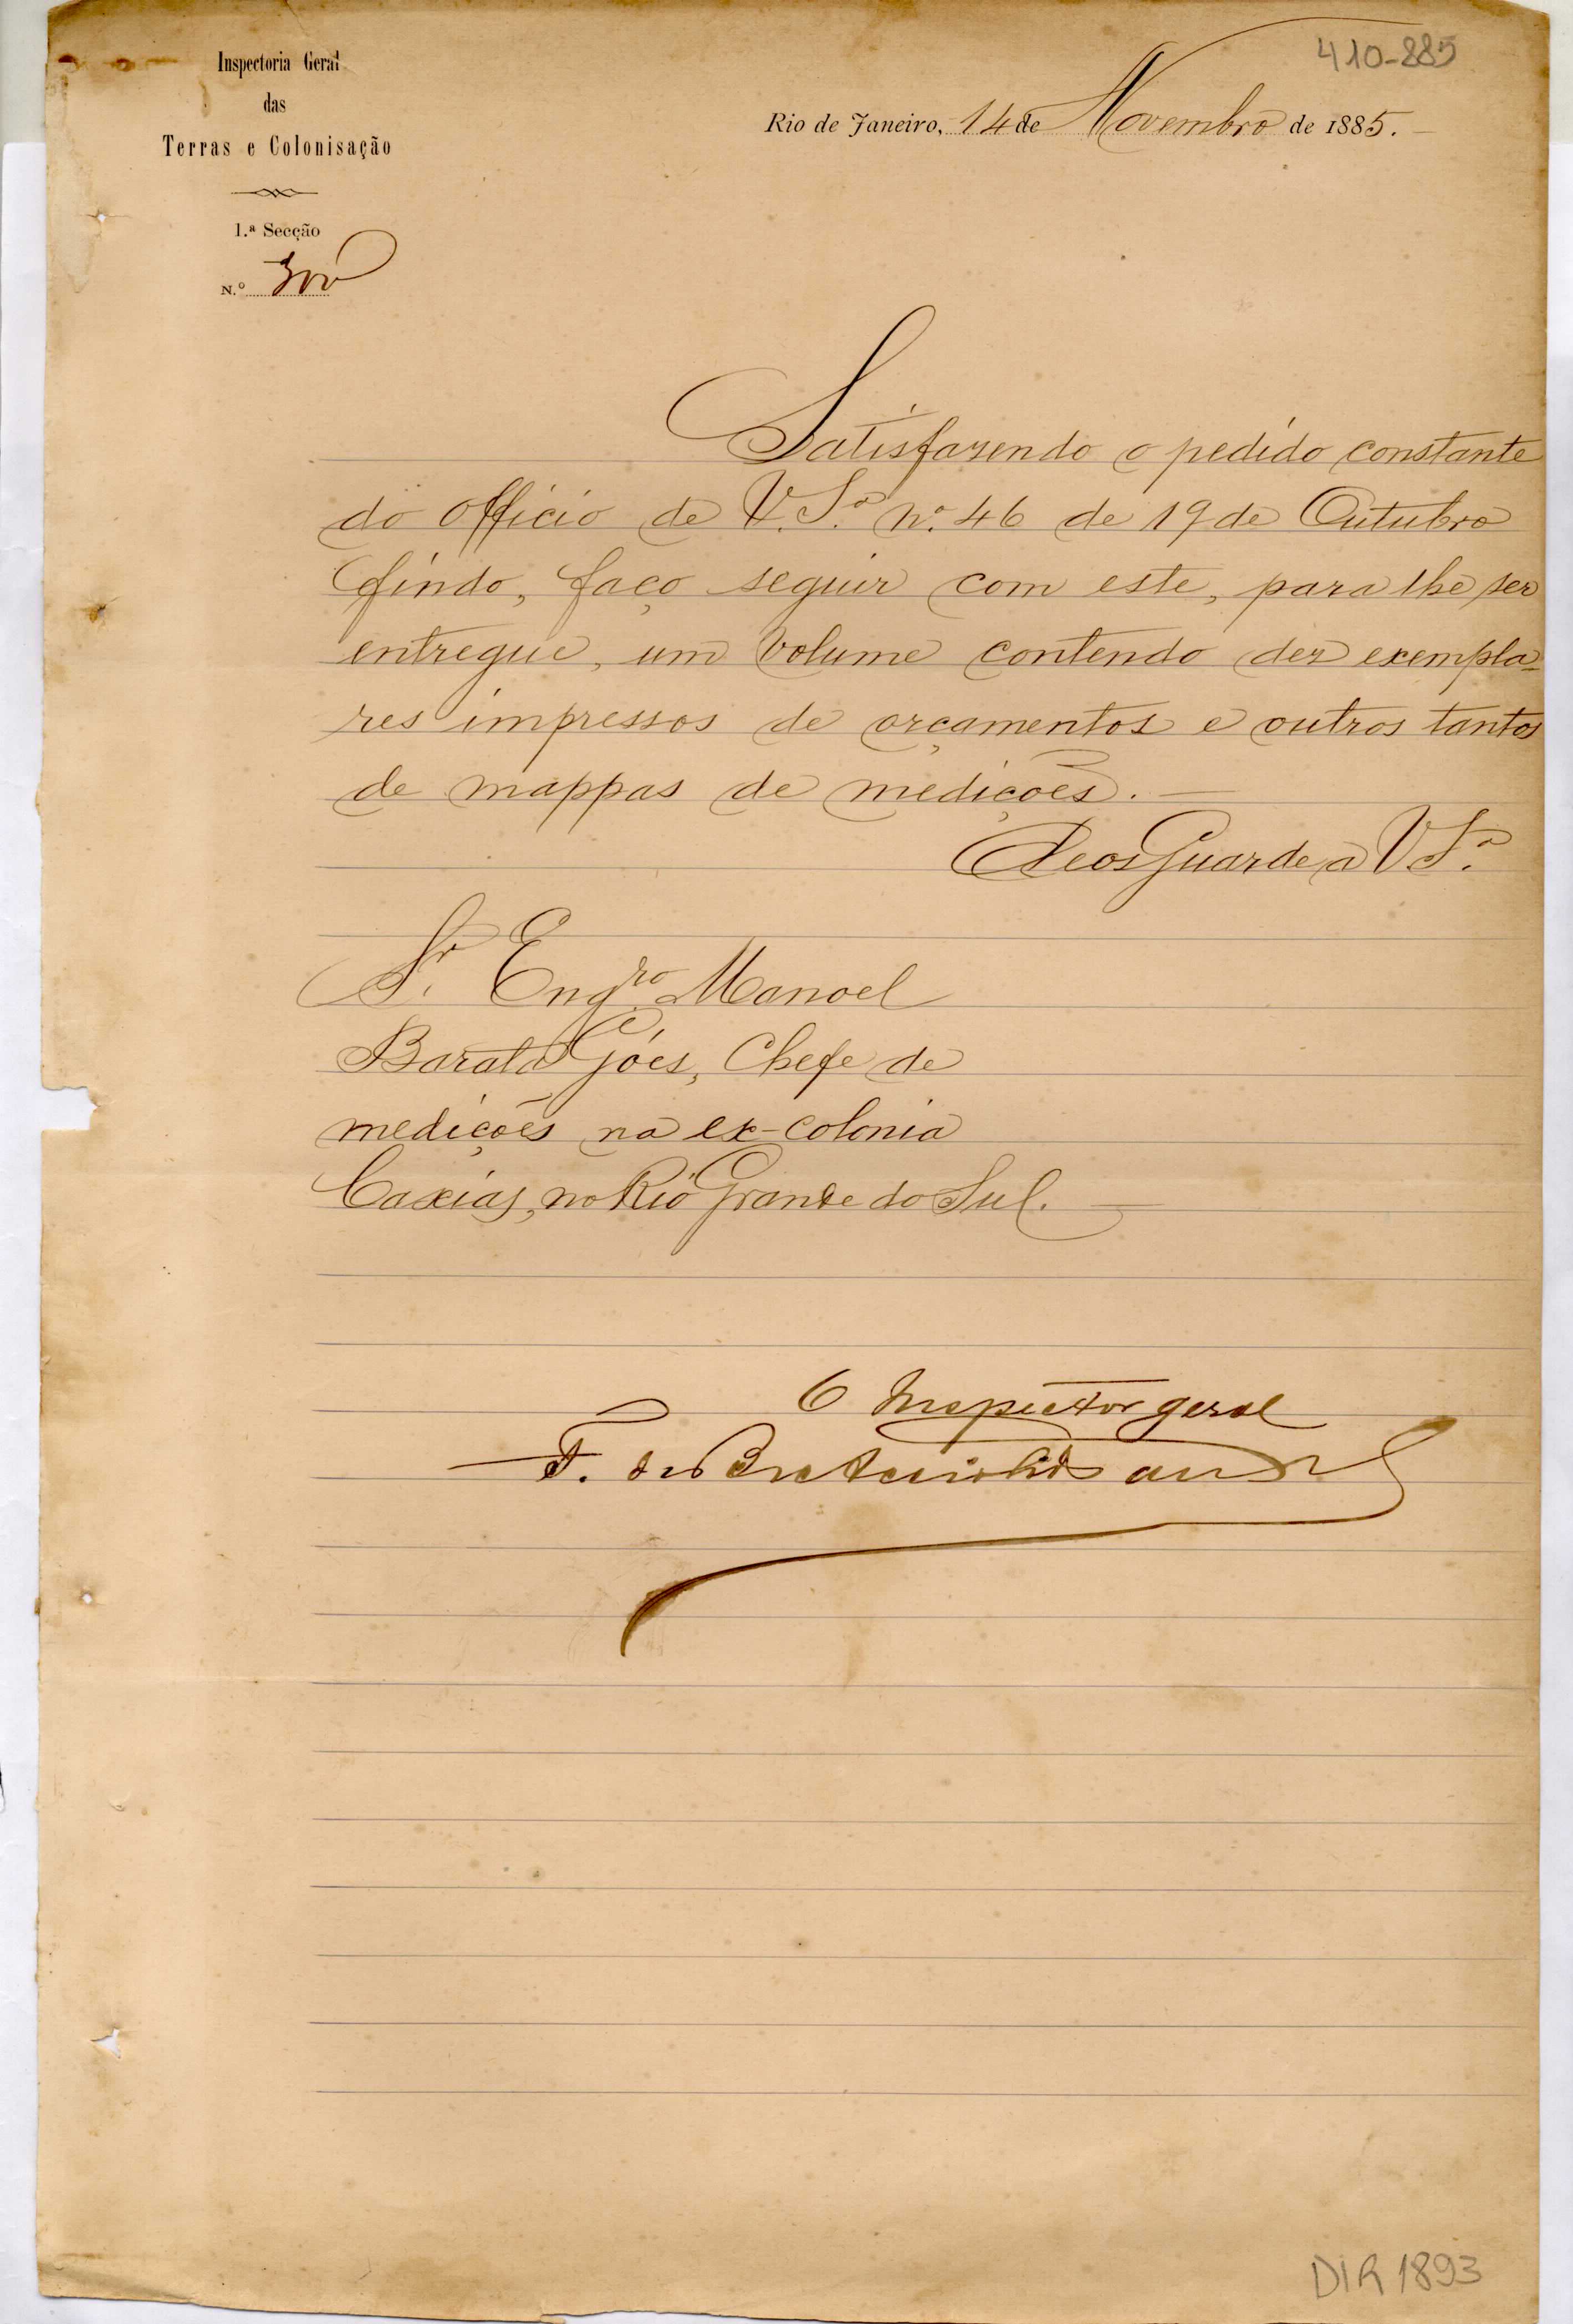 410-885
Inspectoria Geral
das
Terras e Colonisação
1.ª Secção
N.º 300
Rio de Janeiro, 14 de Novembro de 1885.
Satisfazendo o pedido constante
do officio de V. S.ª nº. 46 de 19 de Outubro
findo, faço seguir com este, para lhe ser
entregue, um volume contendo dez exempla-
res impressos de orçamentos e outros tantos
de mappas de medições.
Deos Guarde a V. S.ª
Sr. Engro. Manoel
Barata Góes, Chefe de
medições na ex-colonia
Caxias, no Rio Grande do Sul.
O Inspector geral
F. de
DIR 1893